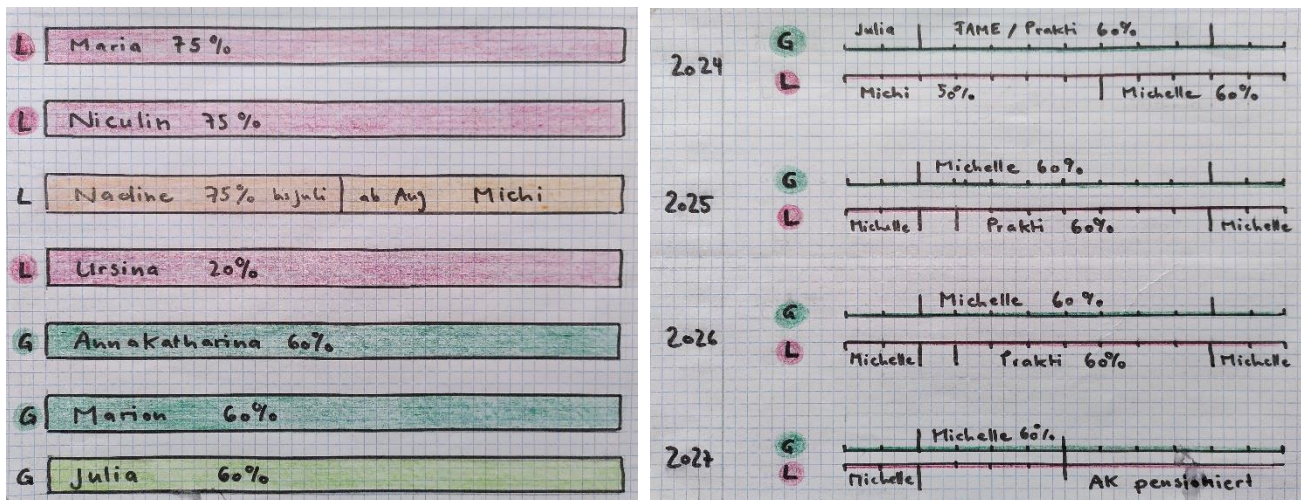 L Maria 75%
L Niculin 75%
L Nadine 75% bis Juli ab Aug Michi
L Ursina 20%
G Annakatharina 60%
G Marion 60%
G Julia 60%
2024
G Julia FAME / Prakti 60%
L Michi 50% Michelle 60%
2025
G Michelle 60%
L Michelle Prakti 60% Michelle
2026
G Michelle 60%
L Michelle Prakti 60% Michelle
2027
G Michelle 60%
L Michelle AK pensioniert